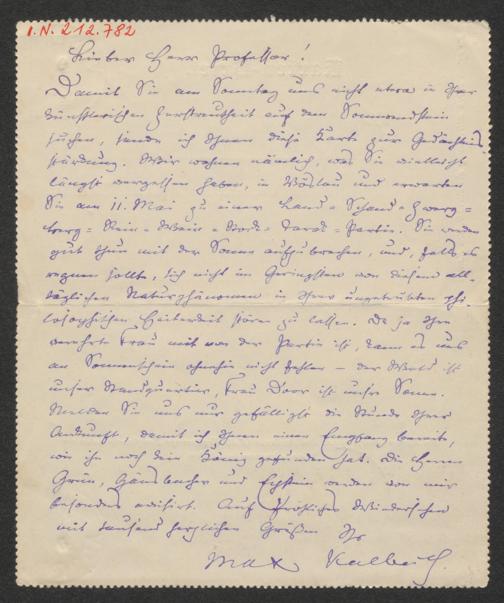 I.N. 212.782
Lieber Herr Professor!
Damit Sie am Sonntag uns nicht etwa in Ihrer
künstlerischen Zerstreutheit auf dem Sonnwendstein
suchen, sende ich Ihnen diese Karte zur Gedächtnis
stärkung. Wir wohnen nämlich, was Sie vielleicht
längst vergessen haben, in Vöslau und erwarten
Sie am 11. Mai zu einer Land = Schand = Zwerg =
berg = Rein = Wein = Mord = Tarok = Partie. Sie werden
gut thun mit der Sonne aufzubrechen, und, falls es
regnen sollte, sich nicht im Geringsten von diesem all-
täglichen Naturphänomen in Ihrer ungetrübten phi-
losophischen Heiterkeit stören zu lassen. Da ja Ihre
verehrte Frau mit von der Partie ist, kann es uns
an Sonnenschein ohnehin nicht fehlen – der Wald ist
unser Standquartier, Frau Door ist unsre Sonne.
Melden Sie uns nur gefälligst die Stunde Ihrer
Ankunft, damit ich Ihnen einen Empfang bereite,
wie ihn noch kein König gefunden hat. Die Herren
Grün, Gänsbacher und Epstein werden von mir
besonders avisirt. Auf fröhliches Wiedersehen
mit tausend herzlichen Grüßen Ihr
Max Kalbeck.